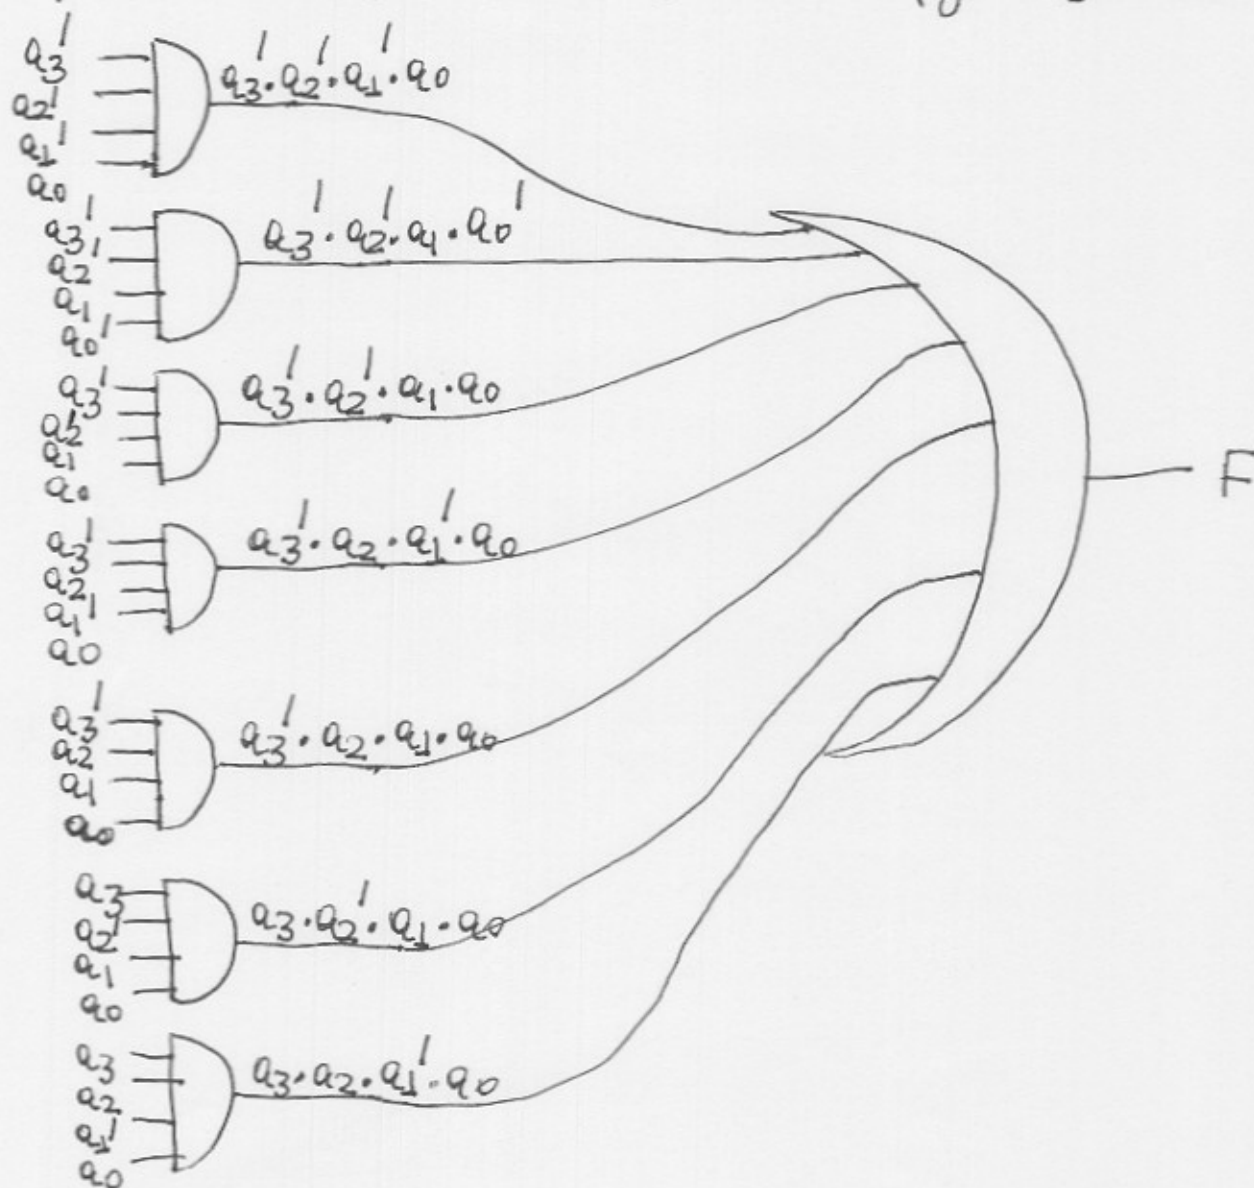 a3'
a2'
a1'
a0
a3'.a2'.a1'.a0
a3'
a2'
a1
a0'
a3'.a2'.a1.a0'
a3'
a2'
a1
a0
a3'.a2'.a1.a0
a3'
a2
a1'
a0
a3'.a2.a1'.a0
a3'
a2
a1
a0
a3'.a2.a1.a0
a3
a2'
a1
a0
a3.a2'.a1.a0
a3
a2
a1'
a0
a3.a2.a1'.a0